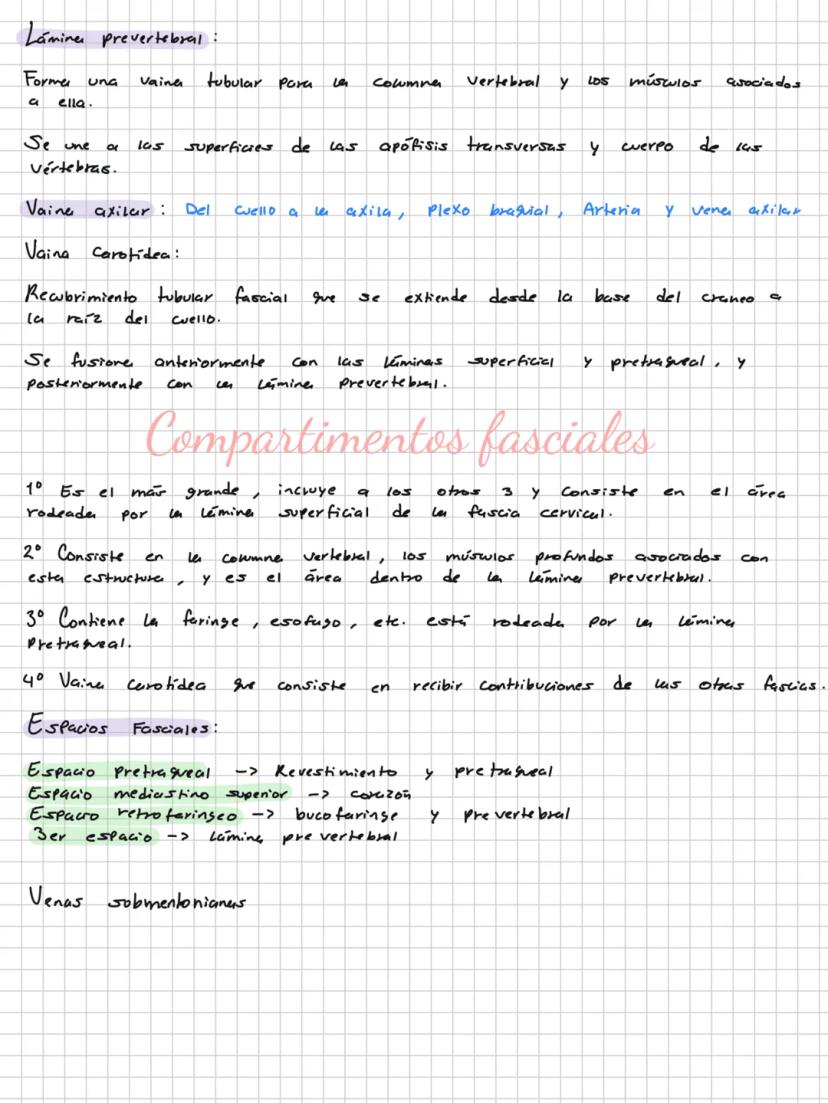 Lámina prevertebral:
Forma una vaina tubular para la columna vertebral y los músculos asociados
a ella.
Se une a las superficies de las apófisis transversas y cuerpo de las
vértebras.
Vaina axilar: Del cuello a la axila, Plexo braquial, Arteria y vena axilar
Vaina Carotídea:
Recubrimiento tubular fascial que se extiende desde la base del craneo a
la raíz del cuello.
Se fusiona anteriormente con las láminas superficial y pretraqueal, y
posteriormente con la lámina prevertebral.
Compartimentos fasciales
1° Es el más grande, incluye a los otros 3 y consiste en el área
rodeada por la lámina superficial de la fascia cervical.
2° Consiste en la columna vertebral, los músculos profundos asociados con
esta estructura, y es el área dentro de la lámina prevertebral.
3° Contiene la faringe, esofago, etc. está rodeada por la lámina
pretraqueal.
4° Vaina carotídea que consiste en recibir contribuciones de las otras fascias.
Espacios Fasciales:
Espacio pretraqueal -> Revestimiento y pretraqueal
Espacio mediastino superior -> corazón
Espacio retrofaringeo -> bucofaringe y prevertebral
3er espacio -> Lámina prevertebral
Venas submentonianas